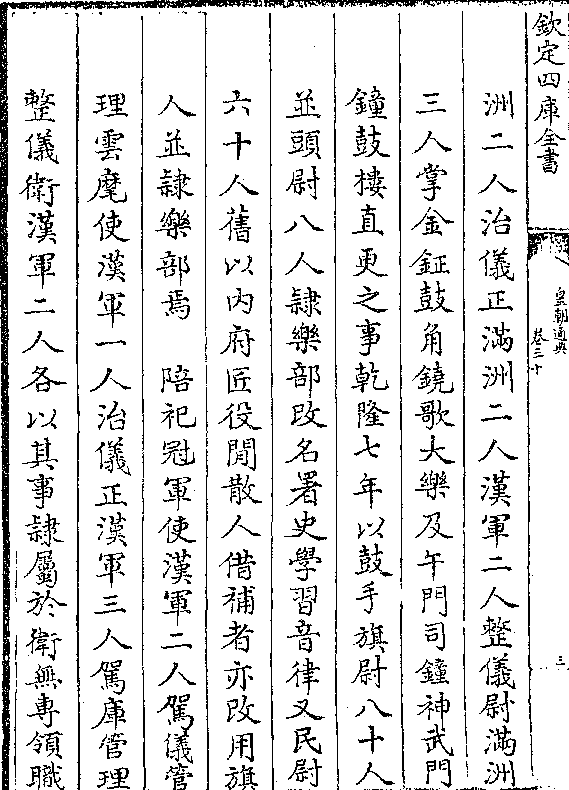 欽定四庫全書
皇朝通典
卷三十
三
洲二人治儀正滿洲二人漢軍二人整儀尉滿洲
三人掌金鉦鼓角鐃歌大樂及午門司鐘神武門
鐘鼓樓直更之事乾隆七年以鼓手旗尉八十人
並頭尉八人隷樂部改名署史學習音律又民尉
六十人舊以內府匠役閒散人借補者亦改用旗
人並隷樂部焉　陪祀冠軍使漢軍二人駕儀管
理雲麾使漢軍一人治儀正漢軍三人駕庫管理
整儀衛漢軍二人各以其事隷屬於衛無專領職